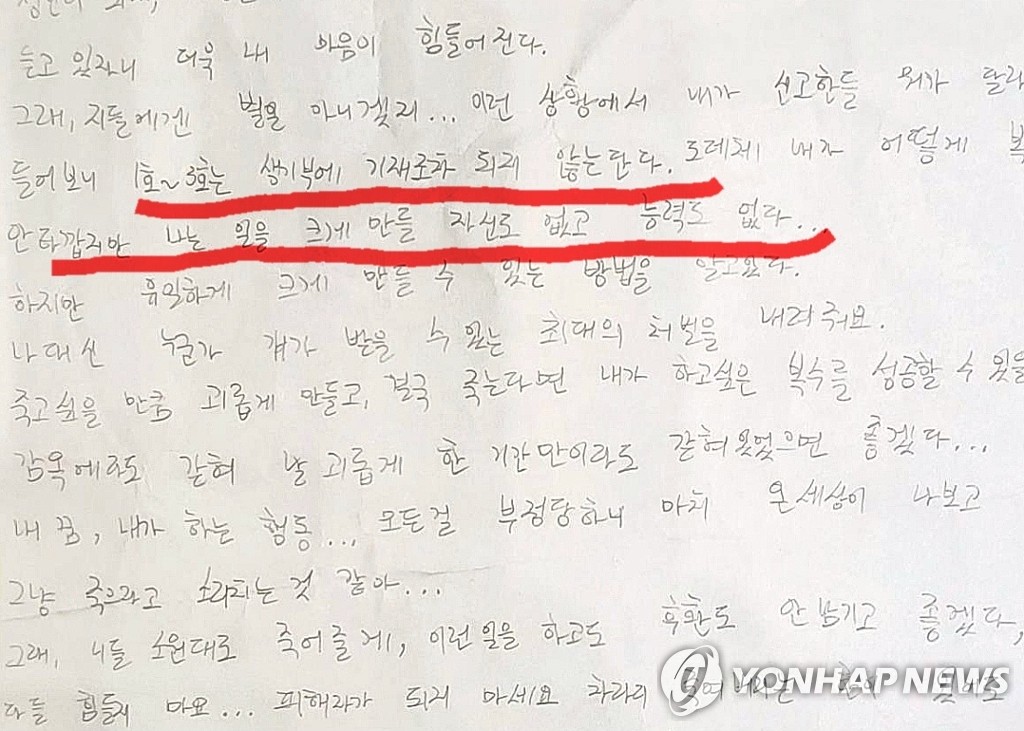 듣고 있자니 더욱 내 마음이 힘들어진다.
그래, 지들에겐 별일 아니겠지... 이런 상황에서 내가 신고한들 뭐가 달라
들어보니 1호~3호는 생기부에 기재조차 되지 않는단다. 도데체 내가 어떻게 복
안타깝지만 나는 일을 크게 만들 자신도 없고 능력도 없다...
하지만 유일하게 크게 만들 수 있는 방법을 알고있다.
나 대신 누군가 걔가 받을 수 있는 최대의 처벌을 내려줘요.
죽고싶을 만큼 괴롭게 만들고, 결국 죽는다면 내가 하고싶은 복수를 성공할 수 있을
감옥에라도 갇혀 날 괴롭게 한 기간만이라도 갇혀있었으면 좋겠다...
내 꿈, 내가 하는 행동... 모든걸 부정당하니 마치 온세상이 나보고
그냥 죽으라고 소리치는것 같아...
그래, 니들 소원대로 죽어줄게, 이런일을 하고도 후환도 안남기고 좋겠다,
다들 힘들지 마요... 피해자가 되지 마세요 차라리
YONHAP NEWS